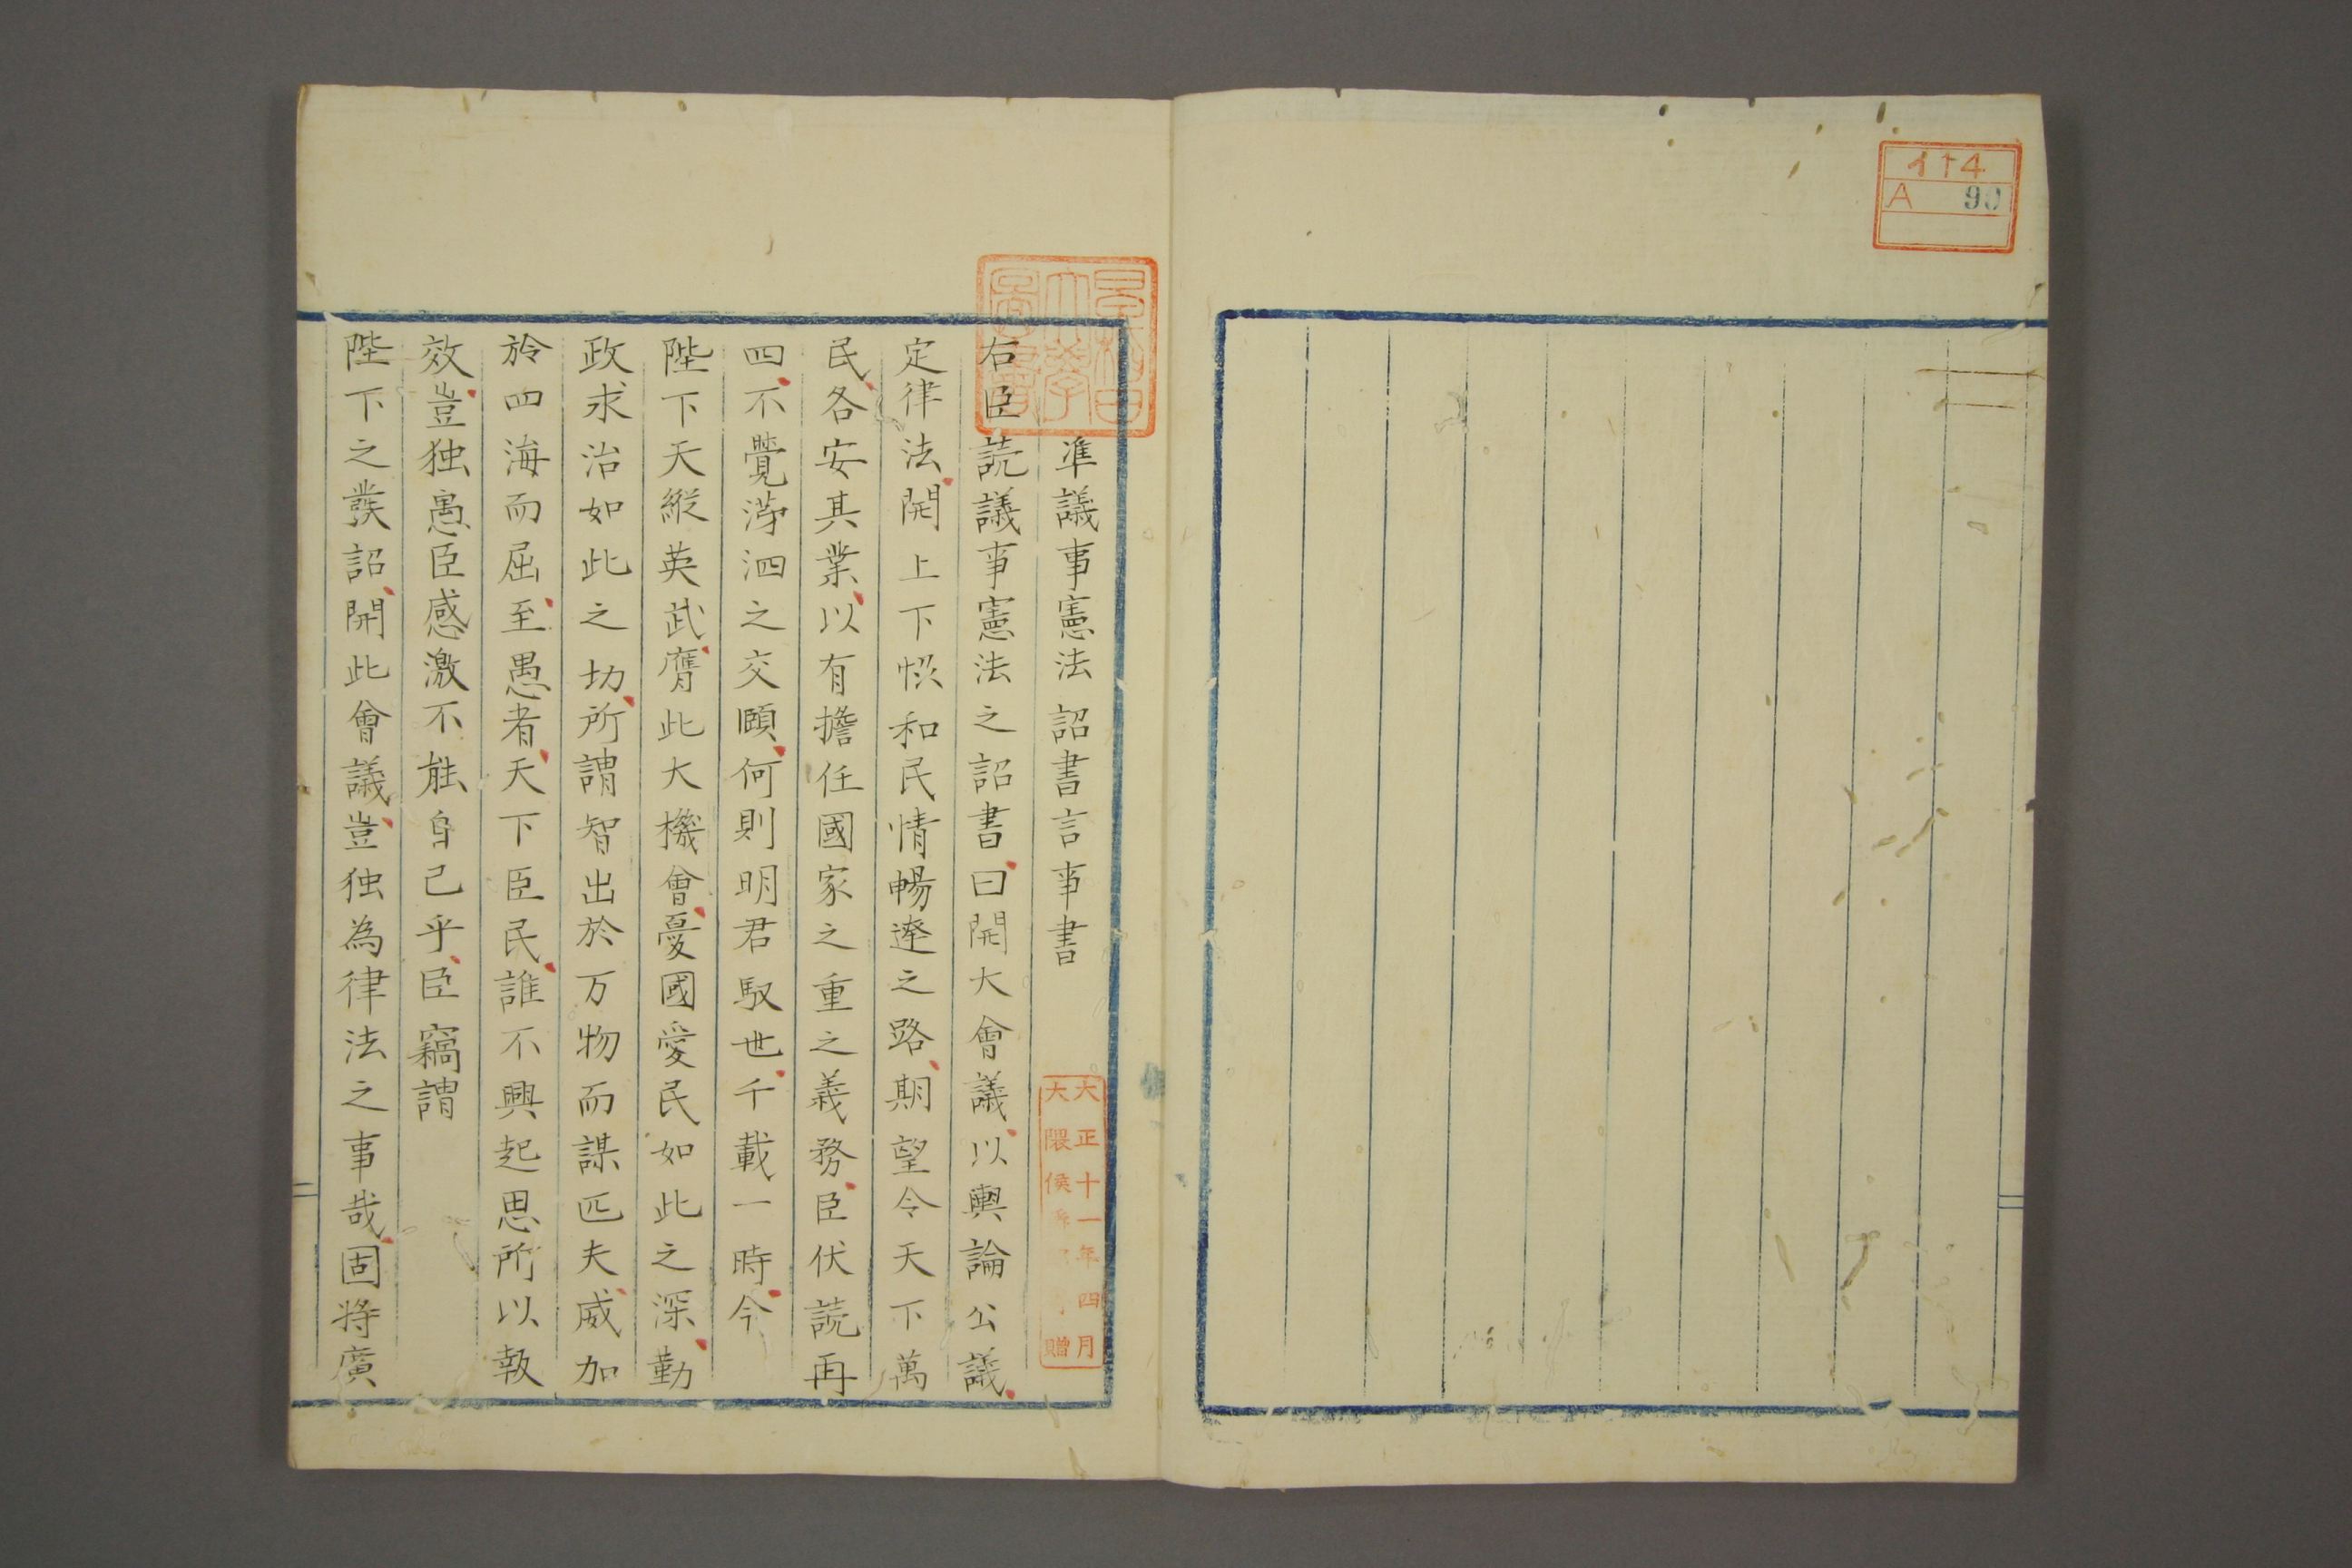 イ14
A 90
早稲田大學圖書
準議事憲法詔書言事書
大正十一年四月
大隈侯 贈
右臣読議事憲法之詔書曰開大會議以輿論公議
定律法開上下恊和民情暢達之路期望令天下萬
民各安其業以有擔任國家之重之義務臣伏読再
四不覺涕泗之交頤何則明君馭世千載一時今
陛下天縦英武膺此大機會憂國愛民如此之深勤
政求治如此之切所謂智出於万物而謀匹夫威加
於四海而屈至愚者天下臣民誰不興起思所以報
效豈独愚臣感激不能自己乎臣竊謂
陛下之発詔開此會議豈独為律法之事哉固将廣